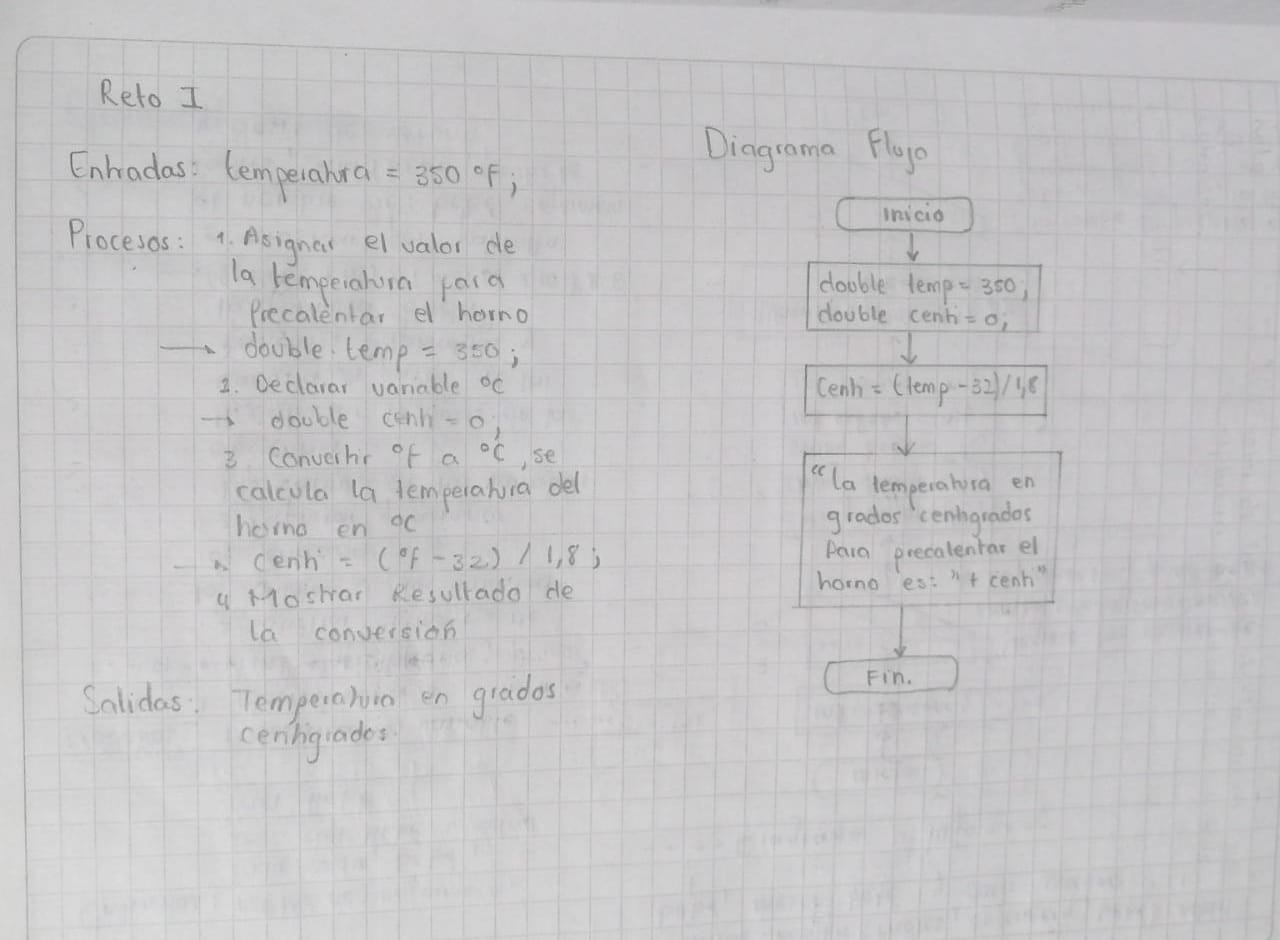 Reto I
Entradas: temperatura = 350 °F;
Procesos: 1. Asignar el valor de
la temperatura para
Precalentar el horno
→ double temp = 350;
2. Declarar variable °C
→ double centi = 0;
3 Convertir °F a °C, se
calcula la temperatura del
horno en °C
→ centi = (°F - 32) / 1,8;
4 Mostrar Resultado de
la conversión
Salidas: Temperatura en grados
centigrados.
Diagrama Flujo
Inicio
double temp = 350;
double centi = 0;
Centi = (temp - 32) / 1,8
"La temperatura en
grados centigrados
Para precalentar el
horno es: " + centi"
Fin.